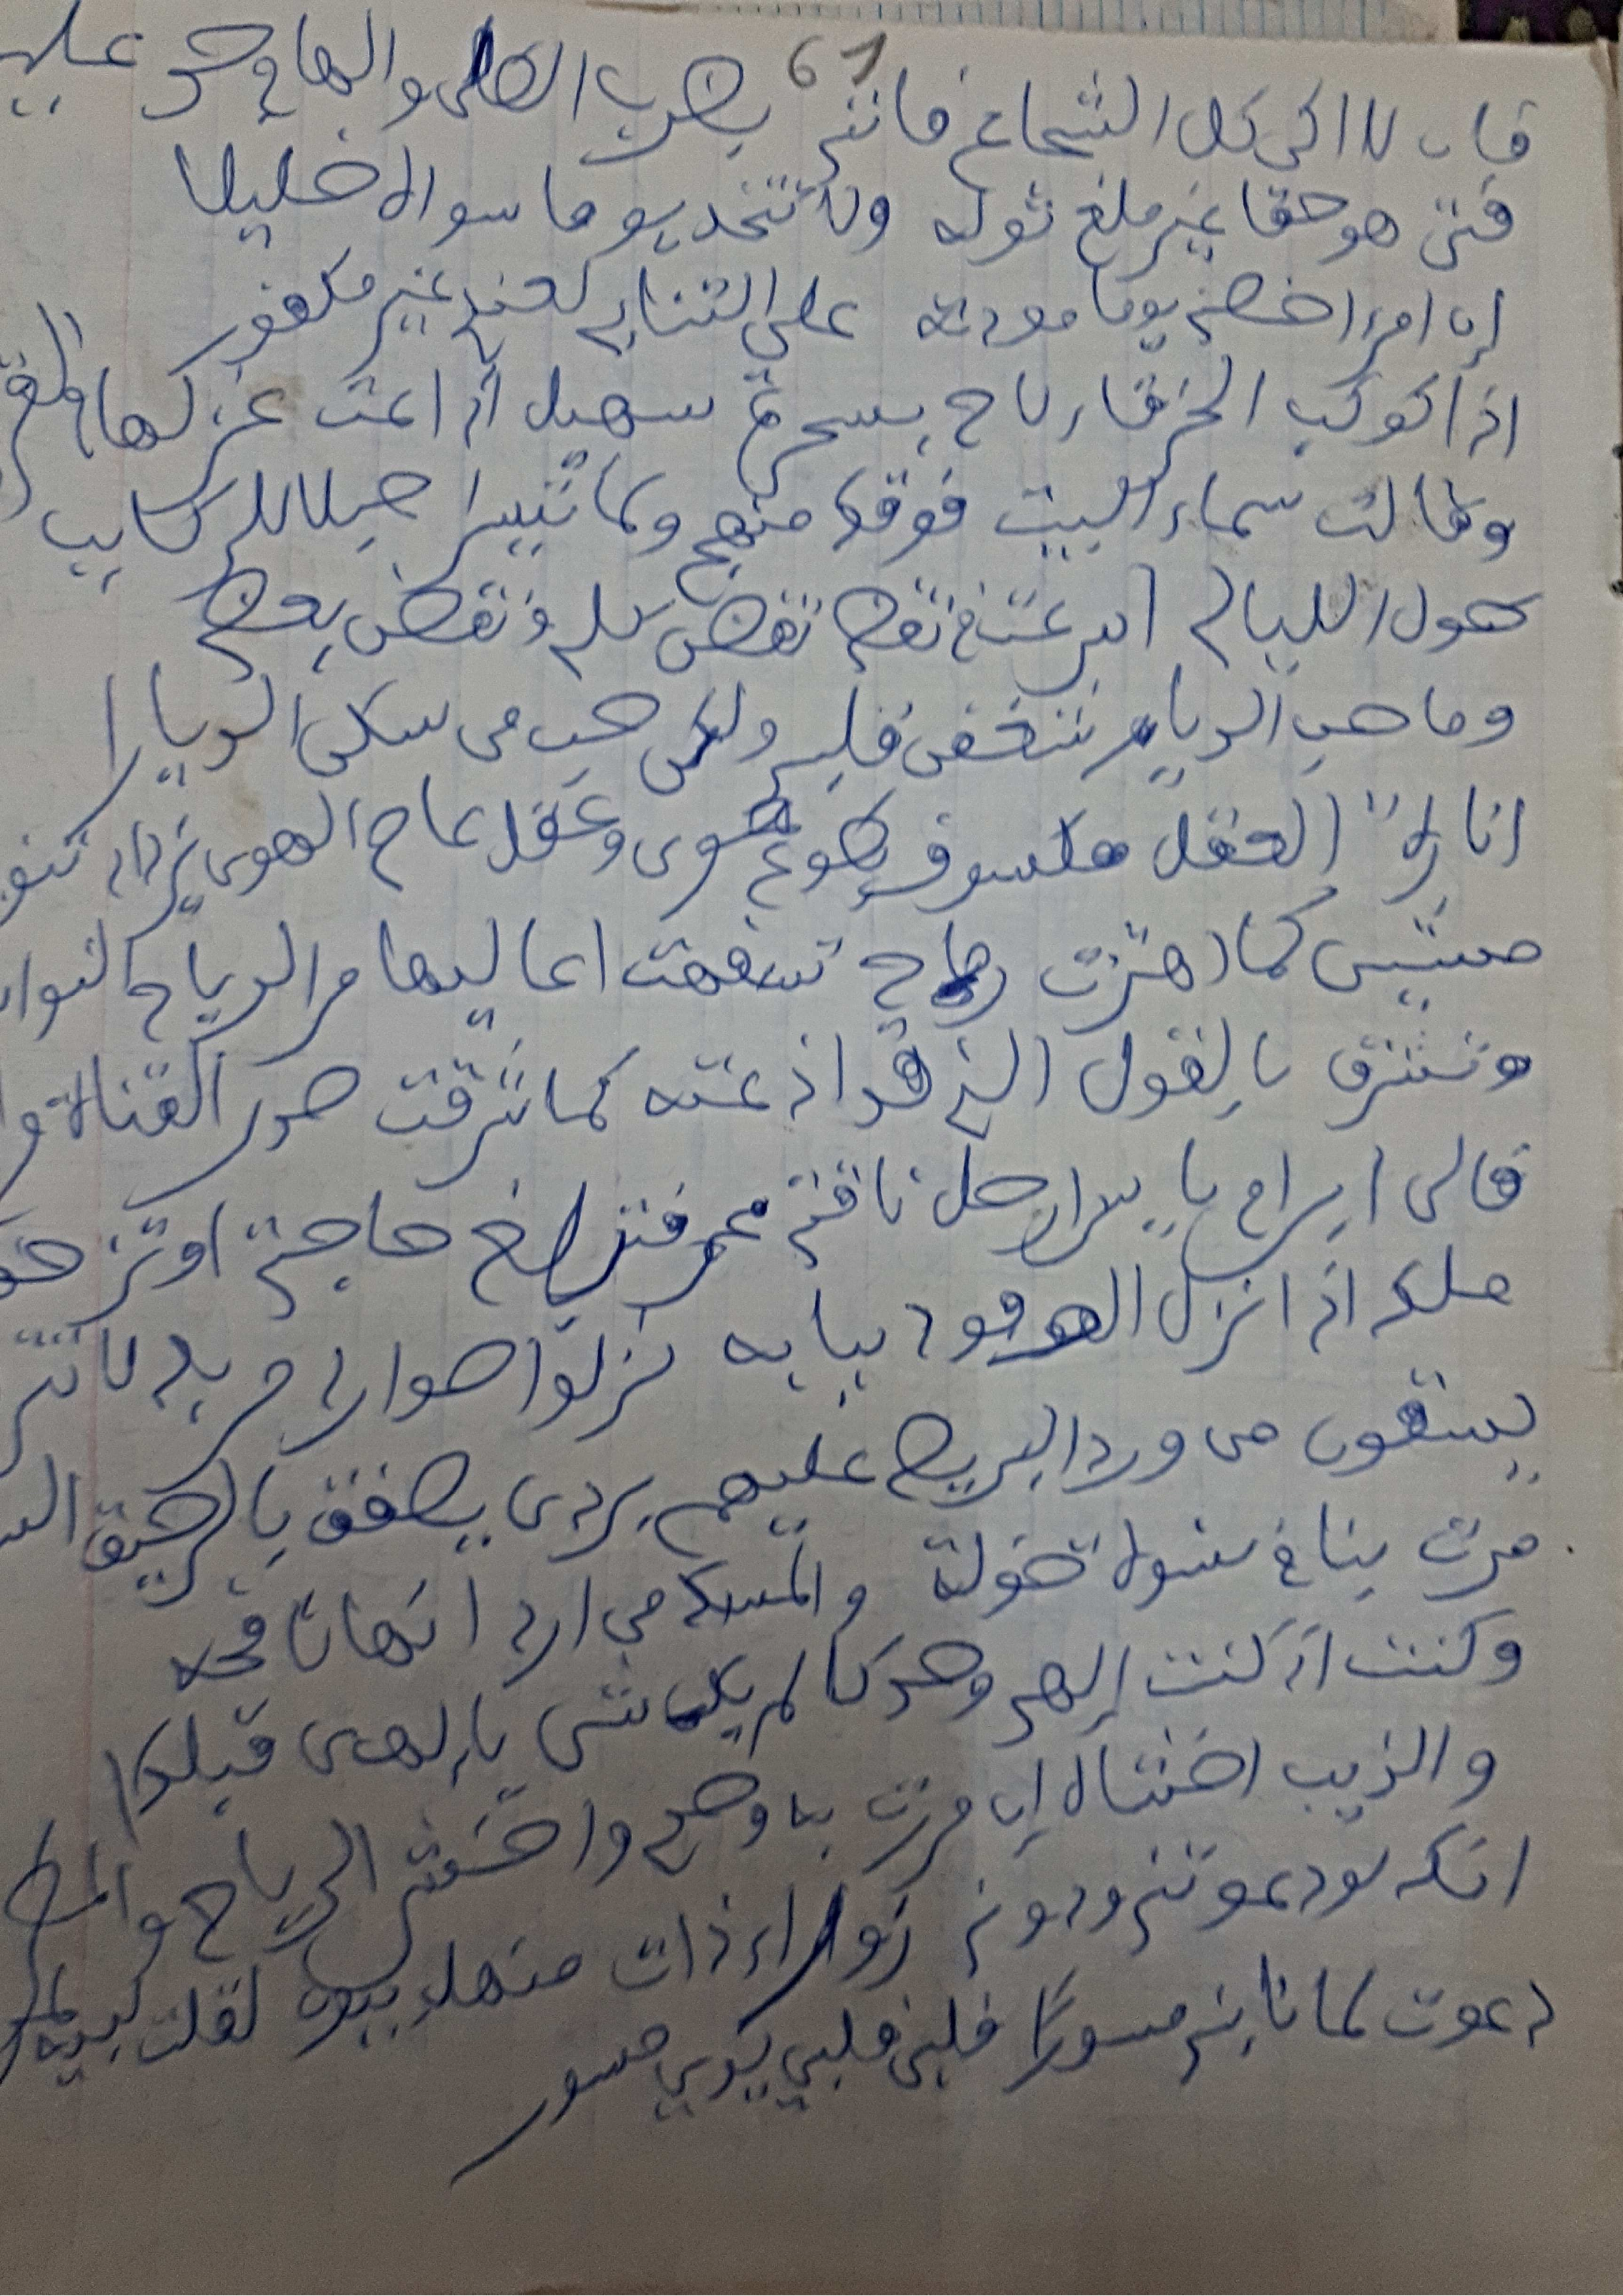 61
فان لا اكن كل الشجاع فانني بضرب الطلى والهام حق عليم
فتى هو حقا غير ملغ توله ولا تتخذ يوما سواه خليلا
إن امرءا خصني يوما مودته على التنائي لعندي غير مكفور
اذا كوكب الخرقاء لاح بسحرة سهيل اذاعت غزلها في القر
وقالت سماء البيت فوقك منهج ولما تيسر احبلا للركايب
طول الليالي اسرعت في نقضي نقضن كلي ونقضن بعضي
وما حب الديار شغفن قلبي ولكن حب من سكن الديارا
انارة العقل مكسوف بطوع هوى وعقل عاص الهوى يزداد تنو
مشين كما اهتزت رماح تسفهت اعاليها مر الرياح النوا
وتشرق بالقول الذي قد اذعته كما شرقت صدر القناة م
فالى ابن ام اياس ارحل ناقتي عمرو فتبلغ حاجتي او تزحف
ملك اذا نزل الوفود ببابه نزلوا موارد مزبد لا ينز
يسقون من ورد البريص عليهم بردى يصفق بالرحيق الس
مرت بنا في نسوة خولة والمسك من اردانها نافحه
وكنت اذ كنت إلهي وحدكا لم يك شي يا إلهى قبلكا
والذيب اخشاه إن مررت به وحدي واخشى الرياح والمط
انك لو دعوتني ودوني زوراء ذات منهل بيون لقلت لبيه لم
دعوت لما نابني مسورا فلبى فلبي يدي مسور